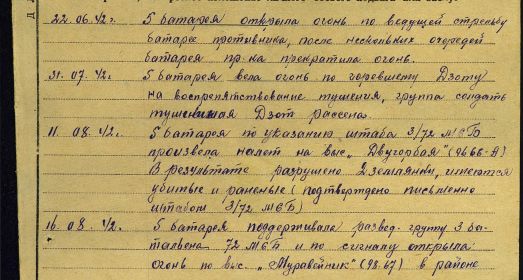 22.06.42г. 5 батарея открыла огонь по ведущей стрельбу
батарее противника, после нескольких очередей
батарея пр-ка прекратила огонь.
31.07.42. 5 батарея вела огонь по горевшему Дзоту
на воспрепятствование тушения, группа солдать
тушившая Дзот рассеена.
11.08.42. 5 батарея по указанию штаба 3/72 МСБ
произвела налет на выс. „Двугорбая" (9666-А)
В результате разрушено 2 землянки, имеются
убитые и раненые (подтверждено письменно
штабом 3/72 МСБ)
16.08.42. 5 батарея поддерживала развед. группу 3 ба-
тальена 72 МСП и по сигналу открыла
огонь по выс. „Муравейник" (98.67) в районе